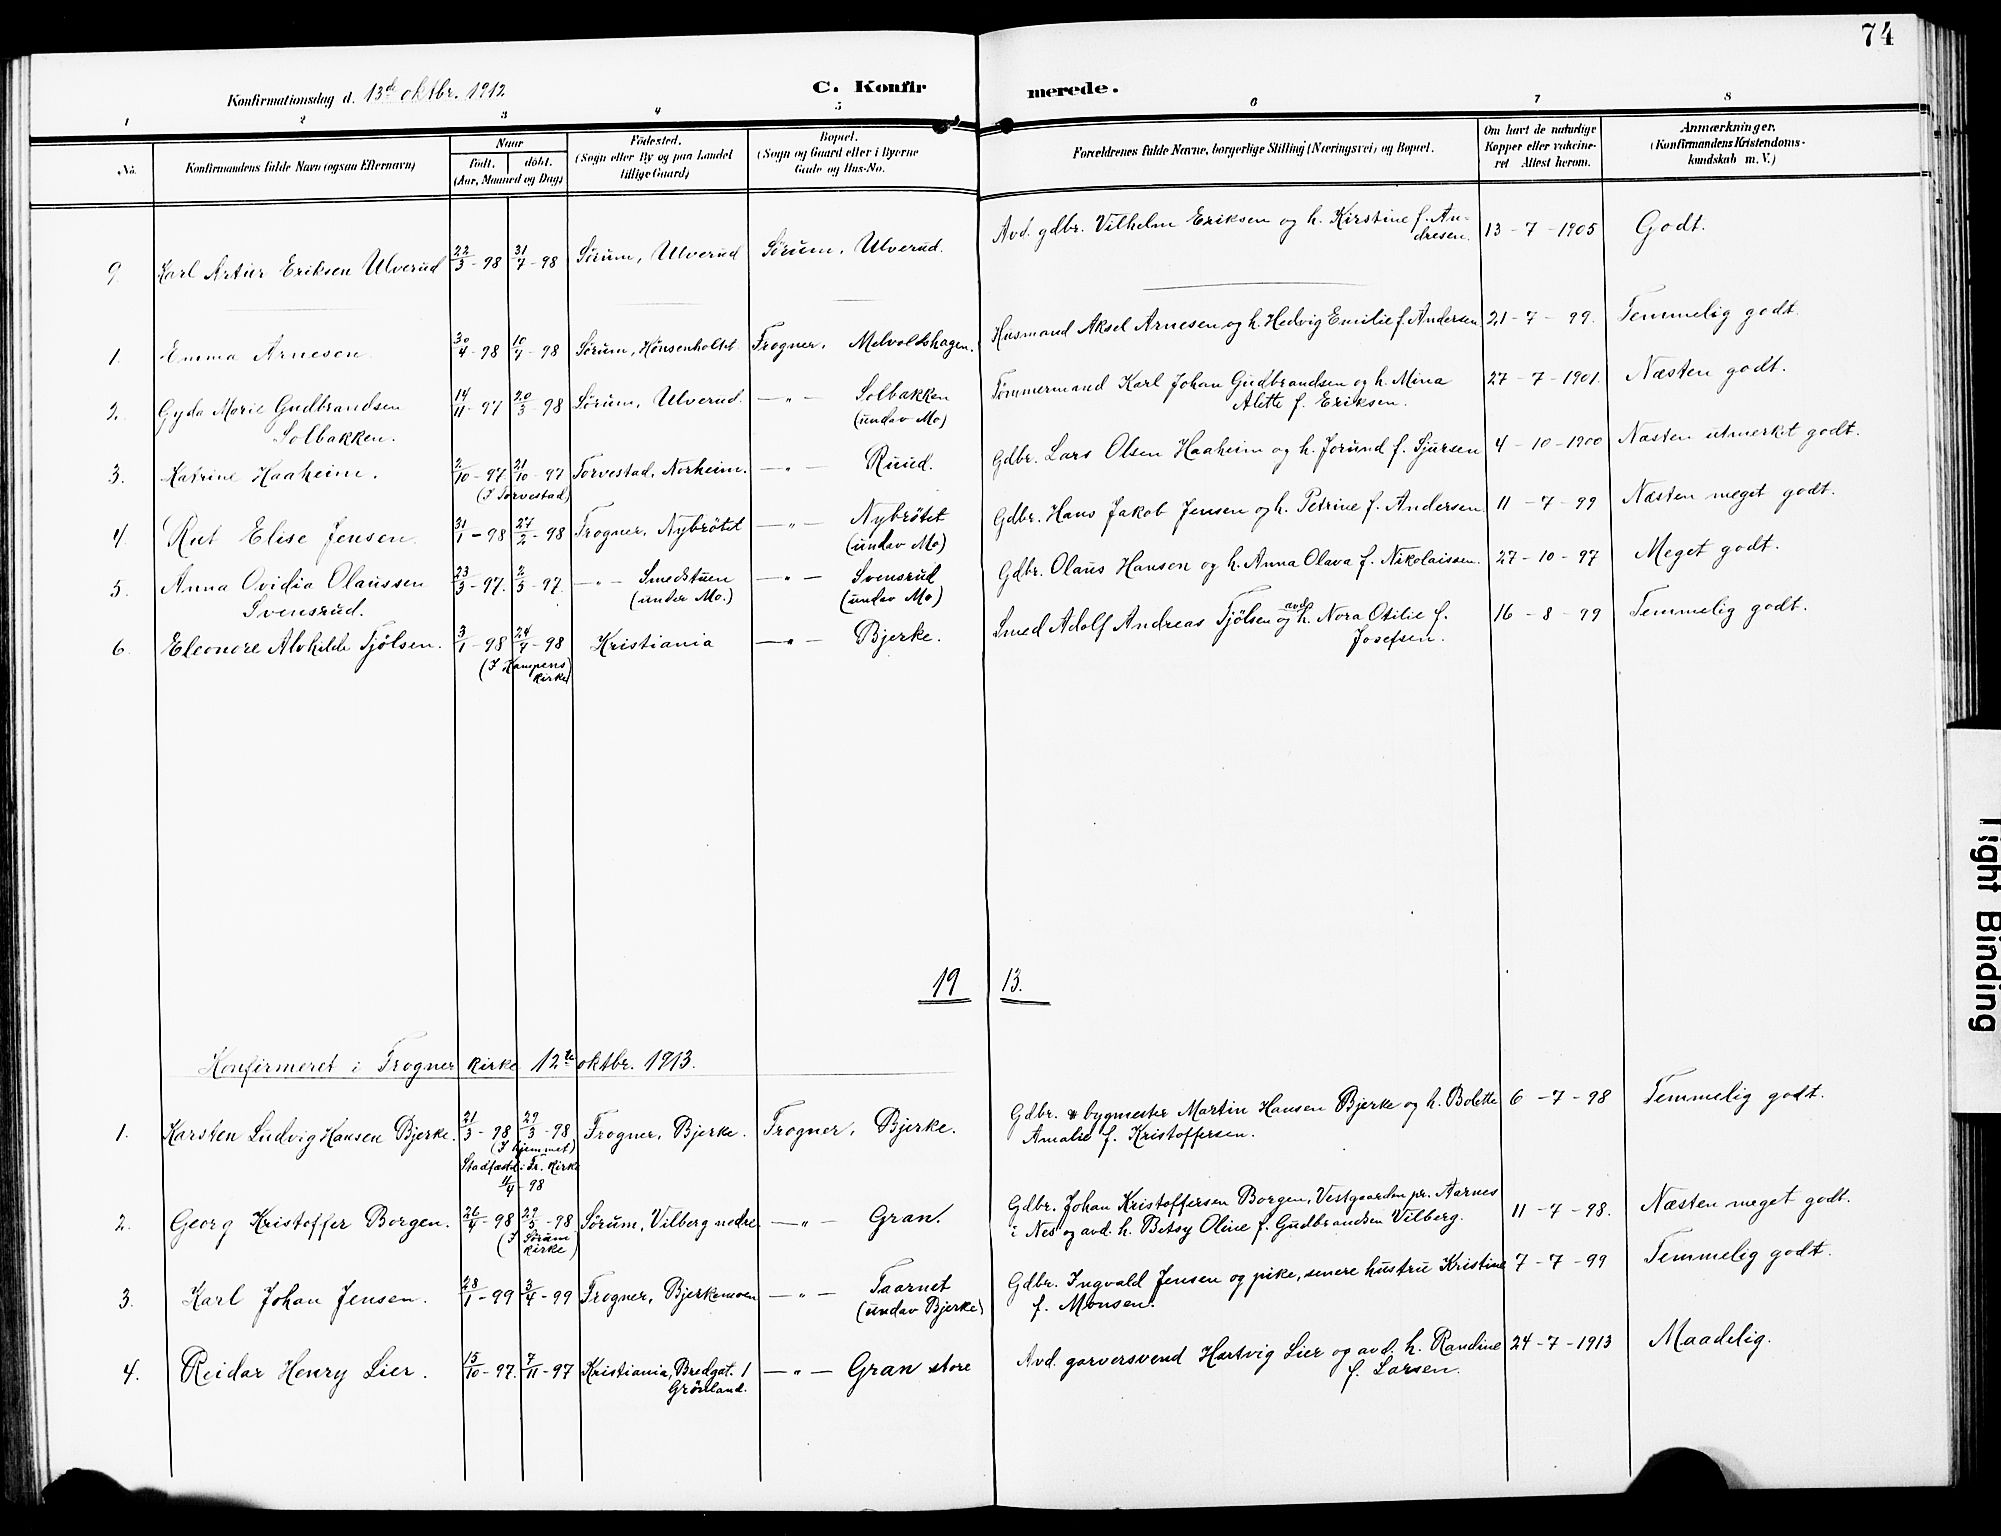 74
Konfirmationsdag d. 13de oktbr. 1912
C. Konfir merede.
1 2 3 4 5 6 7 8
No. Konfirmandens fulde Navn (ogsaa Efternavn) Naar født. døbt. (Aar, Maaned og Dag) Fødested. (Sogn eller By og paa Landet tillige Gaard) Bopæl. (Sogn og Gaard eller i Byerne Gade og Hus-No. Forældrenes fulde Navne, borgerlige Stilling (Næringsvei) og Bopæl. Om havt de naturlige Kopper eller vakcineret Attest herom. Anmærkninger. (Konfirmandens Kristendomskundskab m. V.)
9. Karl Artur Eriksen Ulverud 22/3 - 98 31/7 - 98 Sørum, Ulverud Sørum, Ulverud. Avd. gdbr. Vilhelm Eriksen og h. Kirstine f. Andresen. 13 - 7 - 1905 Godt.
1. Emma Arnesen. 30/4 - 98 10/7 - 98 Sørum, Hønsenholtet Frogner, Melvoldshagen. Husmand Aksel Arnesen og h. Hedvig Emilie f. Andersen 21 - 7 - 99. Temmelig godt.
2. Gyda Marie Gudbrandsen Solbakken. 14/11 - 97 20/3 - 98 Sørum, Ulverud. — " — Solbakken (undav Mo) Tømmermand Karl Johan Gudbrandsen og h. Mina Alette f. Eriksen. 27 - 7 - 1901. Næsten godt.
3. Katrine Haaheim. 2/10 - 97. 21/10 - 97 (I Torvestad) Torvestad, Norheim. — " — Ruud. Gdbr. Lars Olsen Haaheim og h. Jorund f. Sjursen 4 - 10 - 1900 Næsten utmerket godt.
4. Rut Elise Jensen. 31/1 - 98 27/2 - 98 Frogner, Nybrøtet — " — Nybrøtet (undav Mo) Gdbr. Hans Jakob Jensen og h. Petrine f. Andersen. 11 - 7 - 99 Næsten meget godt.
5. Anna Ovidia Olaussen Svensrud. 23/3 - 97. 2/3 - 97. — " — Smedstuen (under Mo.) — " — Svensrud (undav Mo) Gdbr. Olaus Hansen og h. Anna Olava f. Nikolaissen. 27 - 10 - 97 Meget godt.
6. Eleonore Alvhilde Tjølsen. 3/1 - 98 24/4 - 98 (I Kampens kirke) Kristiania — " — Bjerke. Smed Adolf Andreas Tjølsen og avd. h. Nora Otilie f. Josefsen. 16 - 8 - 99 Temmelig godt.
19 13.
Konfirmeret i Frogner kirke 12te oktbr. 1913.
1. Karsten Ludvig Hansen Bjerke. 21/3 - 98 29/3 - 98 (I hjemmet) Stadfæstet i Fr. kirke 11/4 - 98 Frogner, Bjerke. Frogner, Bjerke. Gdbr. & bygmester Martin Hansen Bjerke og h. Bolette Amalie f. Kristoffersen. 6 - 7 - 98 Temmelig godt.
2. Georg Kristoffer Borgen. 26/4 - 98 29/5 - 98 (I Sørum kirke) Sørum, Vilberg nedre — " — Gran. Gdbr. Johan Kristoffersen Borgen, Vestgaarden pr. Aarnes i Nes og avd. h. Betsy Oline f. Gudbrandsen Vilberg. 11 - 7 - 98. Næsten meget godt.
3. Karl Johan Jensen. 28/1 - 99 3/4 - 99 Frogner, Bjerkemoen — " — Taarnet (undav Bjerke) Gdbr. Ingvald Jensen og pike, senere hustru Kristine f. Monsen. 7 - 7 - 99 Temmelig godt.
4. Reidar Henry Lier. 15/10 - 97. 7/11 - 97 Kristiania, Bredgat. 1 Grønland. — " — Gran store Avd. garversvend Hartvig Lier og avd. h. Randine f. Larsen. 24 - 7 - 1913 Maadelig.
Tight Binding